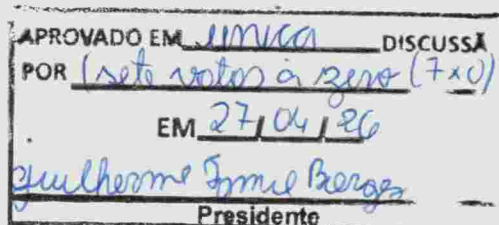 APROVADO EM única DISCUSSÃ
POR (sete votos à zero (7x0)
EM 27/04/26
Guilherme Borges
Presidente